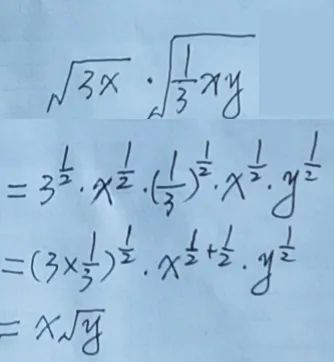 √(3x) · √(1/3 xy)
= 3^(1/2) · x^(1/2) · (1/3)^(1/2) · x^(1/2) · y^(1/2)
= (3 × 1/3)^(1/2) · x^(1/2 + 1/2) · y^(1/2)
= x√y